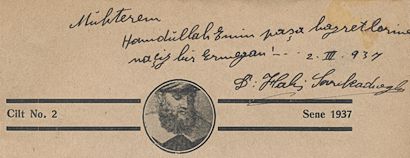 Muhterem
Hamdullah Emin paşa hazretlerine
naçiz bir Ermeğan! -.. 2. III. 937
D: Hakkı
Cilt No. 2
Sene 1937